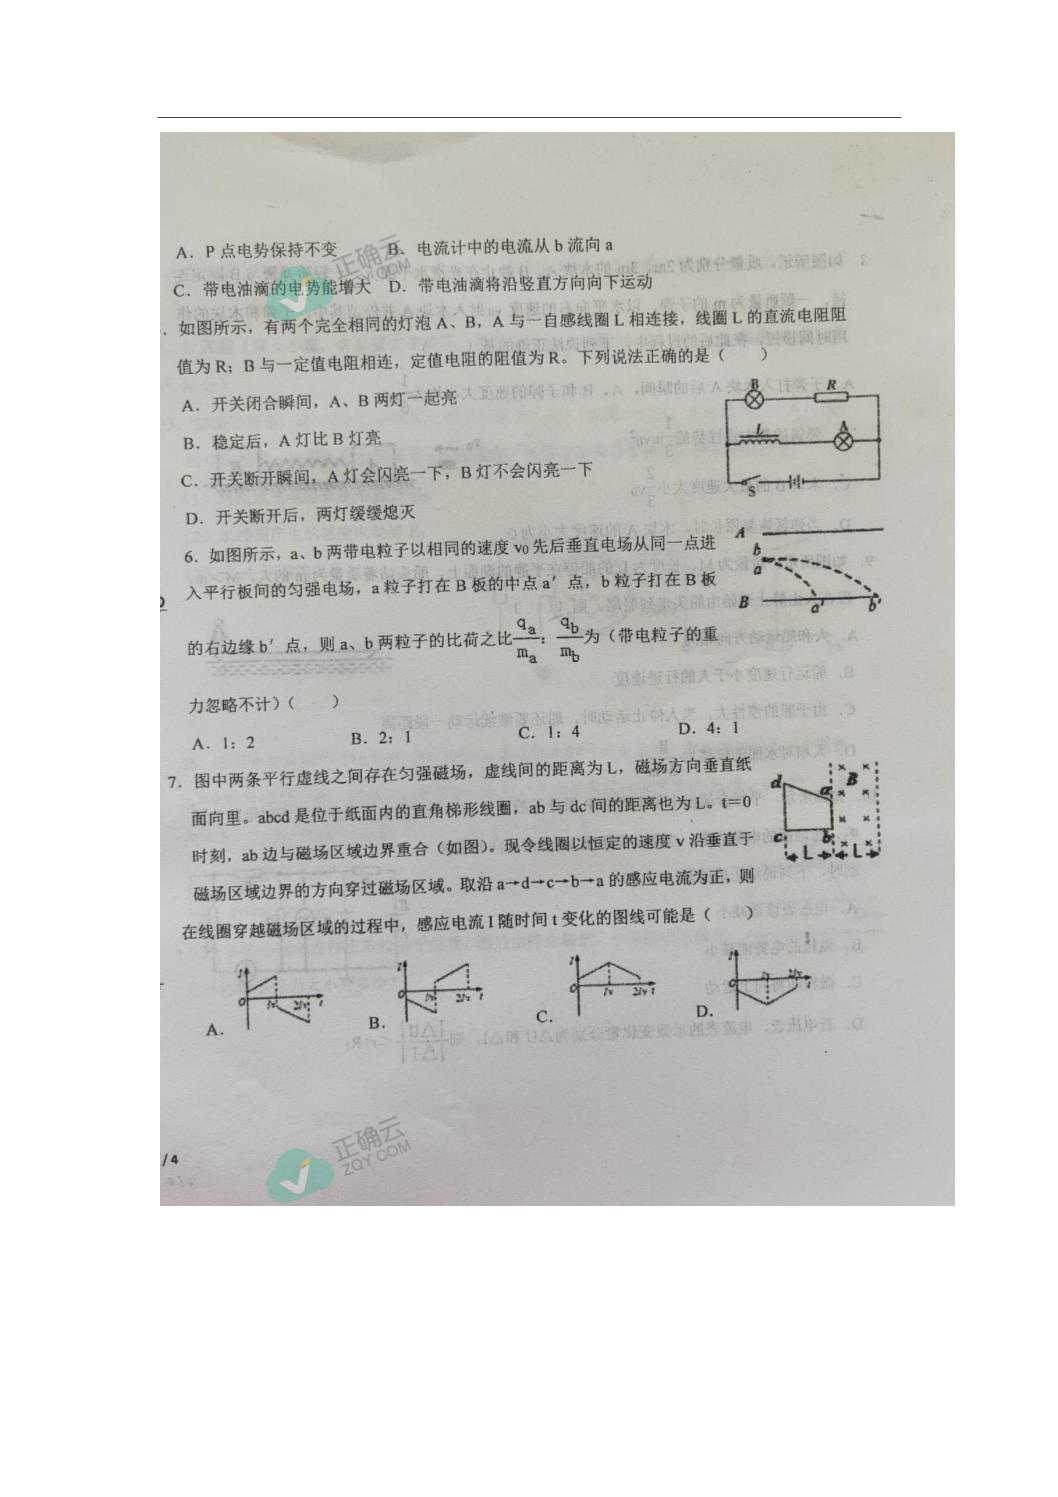 A．P点电势保持不变 B．电流计中的电流从b流向a
C．带电油滴的电势能增大 D．带电油滴将沿竖直方向向下运动
．如图所示，有两个完全相同的灯泡A、B，A与一自感线圈L相连接，线圈L的直流电阻阻
值为R；B与一定值电阻相连，定值电阻的阻值为R。下列说法正确的是（ ）
A．开关闭合瞬间，A、B两灯一起亮
B．稳定后，A灯比B灯亮
C．开关断开瞬间，A灯会闪亮一下，B灯不会闪亮一下
D．开关断开后，两灯缓缓熄灭
B R
L A
S
6．如图所示，a、b两带电粒子以相同的速度v₀先后垂直电场从同一点进
入平行板间的匀强电场，a粒子打在B板的中点a′点，b粒子打在B板
的右边缘b′点，则a、b两粒子的比荷之比qa/ma：qb/mb为（带电粒子的重
力忽略不计）（ ）
A
b
a
B a′ b′
A．1：2 B．2：1 C．1：4 D．4：1
7．图中两条平行虚线之间存在匀强磁场，虚线间的距离为L，磁场方向垂直纸
面向里。abcd是位于纸面内的直角梯形线圈，ab与dc间的距离也为L。t＝0
时刻，ab边与磁场区域边界重合（如图）。现令线圈以恒定的速度v沿垂直于
磁场区域边界的方向穿过磁场区域。取沿a→d→c→b→a的感应电流为正，则
在线圈穿越磁场区域的过程中，感应电流I随时间t变化的图线可能是（ ）
d a B
c b
L L
A． B． C． D．
I O l/v 2l/v t
I O l/v 2l/v t
I O l/v 2l/v t
I O l/v 2l/v t
/4
正确云
ZQY.COM
正确云
ZQY.COM